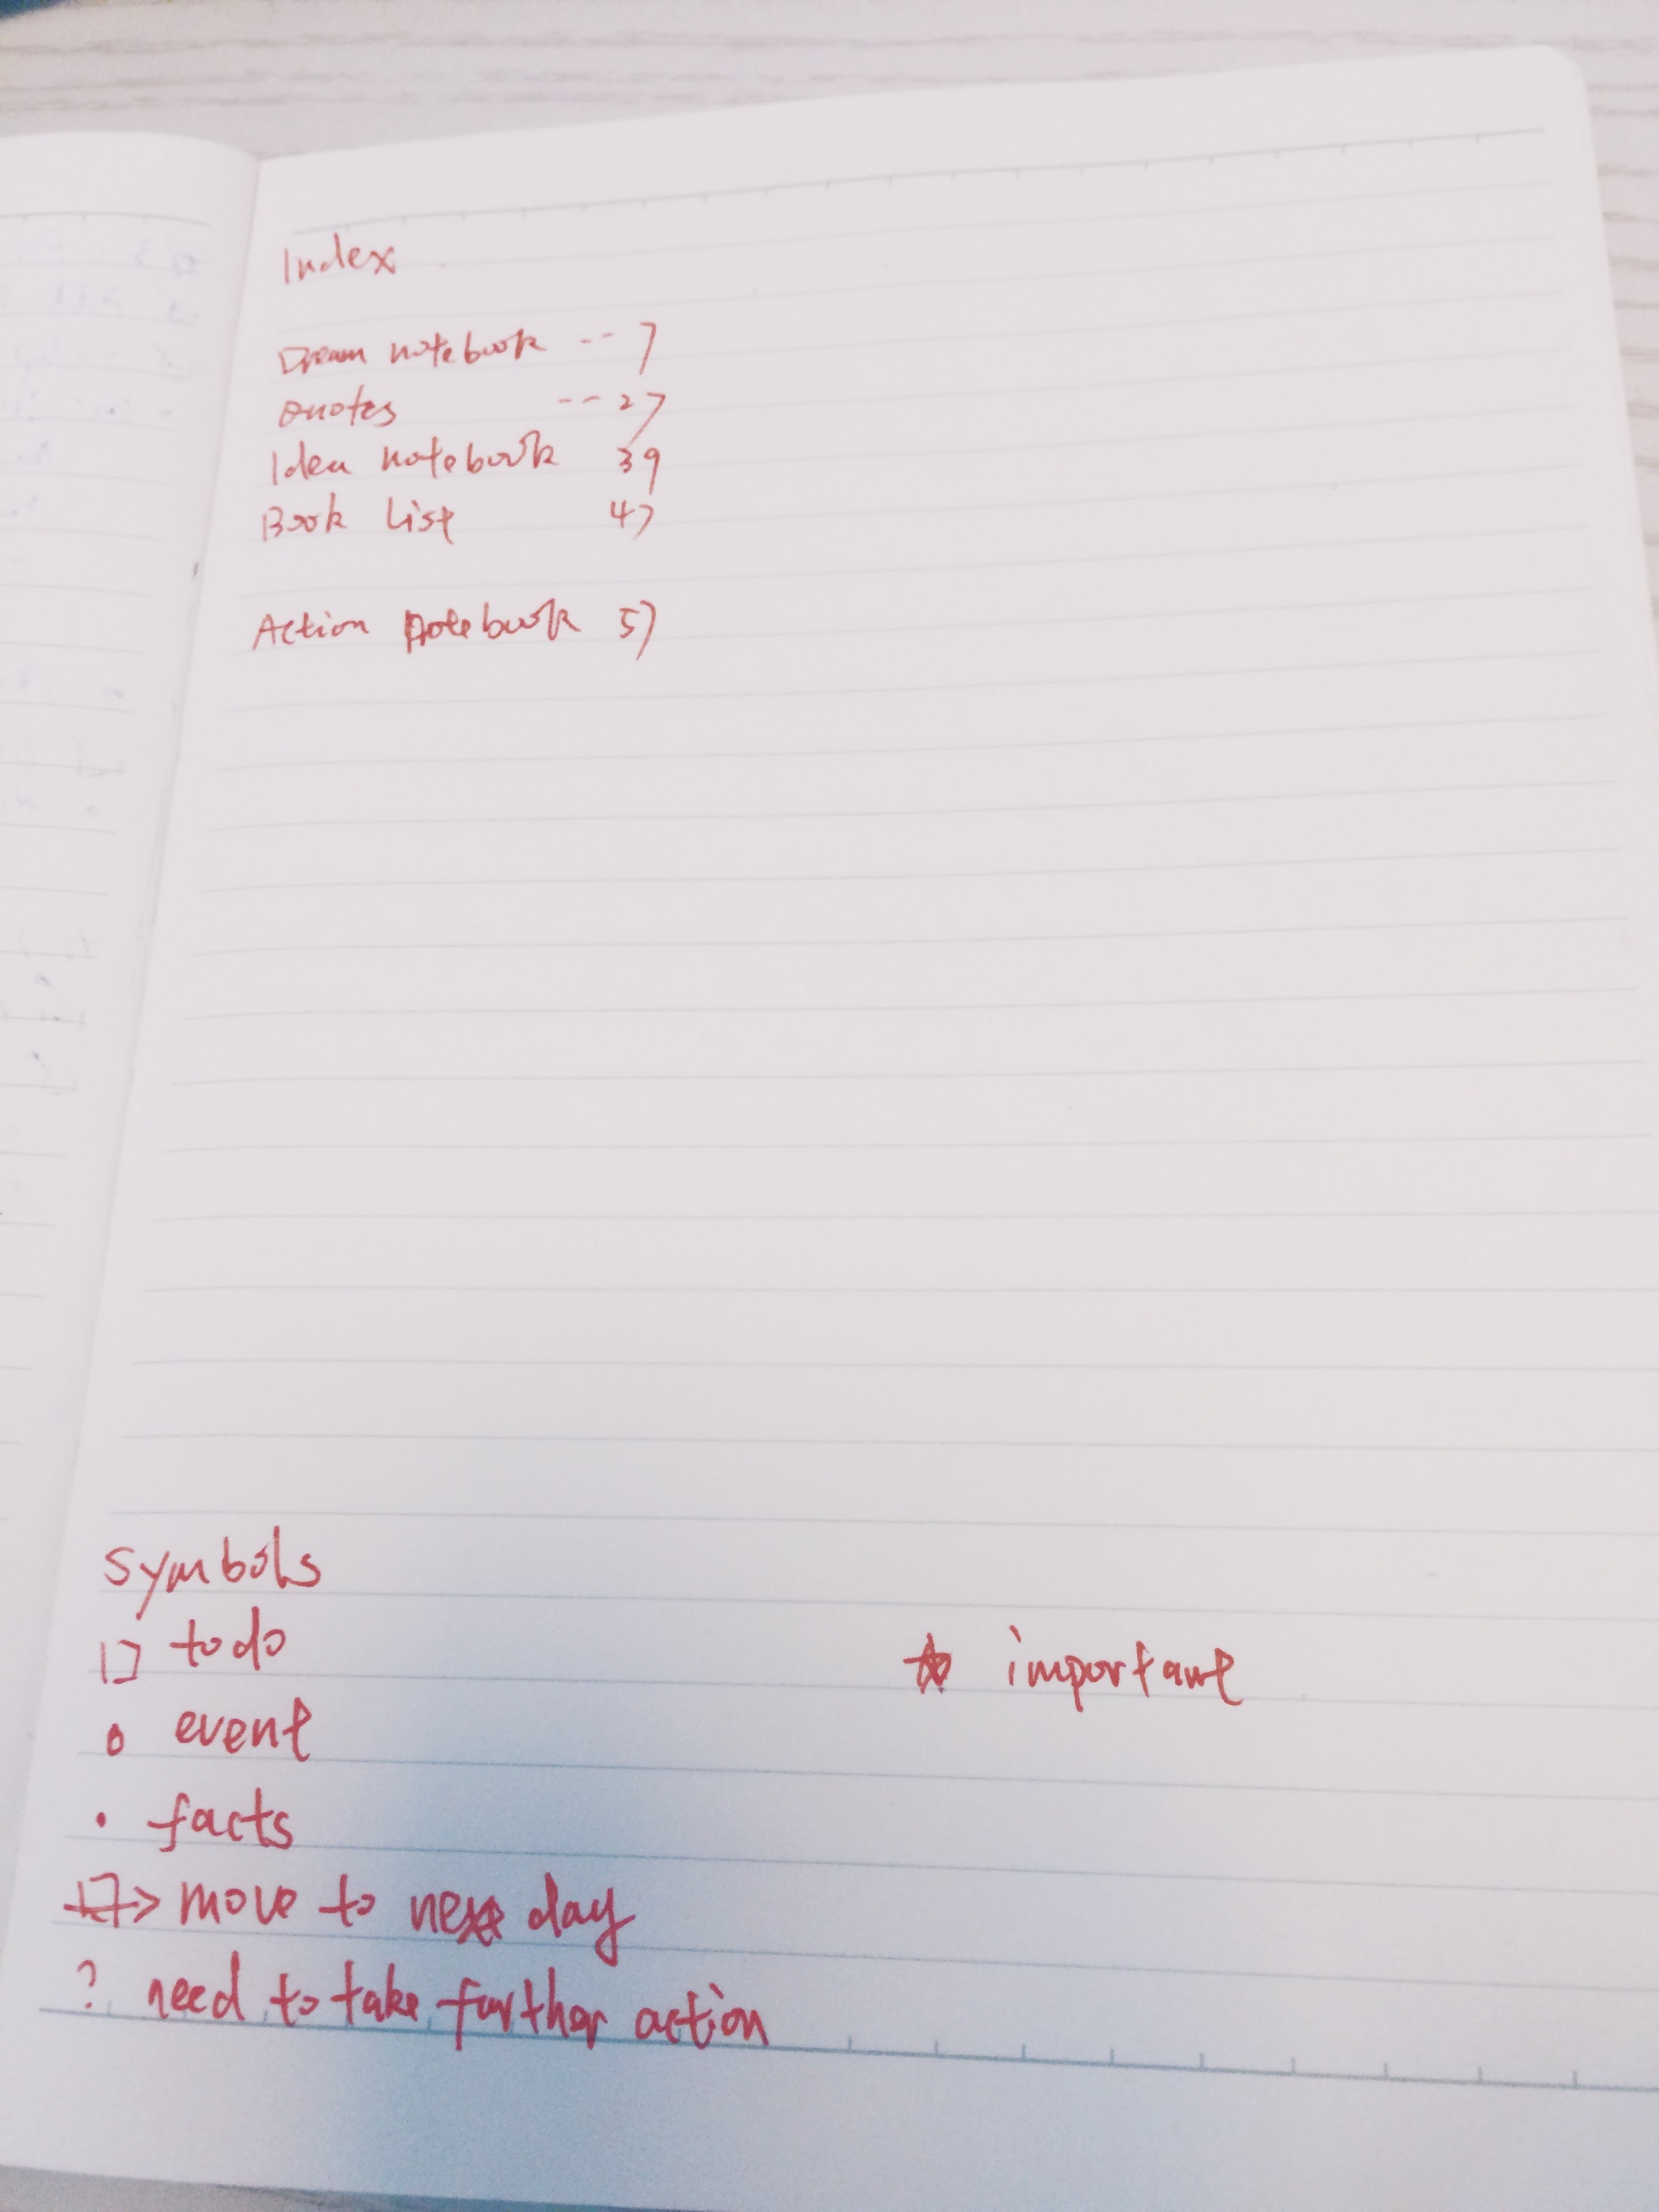 Index
Dream notebook -- 7
Quotes -- 27
Idea notebook 39
Book List 47
Action notebook 57
Symbols
□ todo
★ important
○ event
• facts
□-> move to next day
? need to take further action